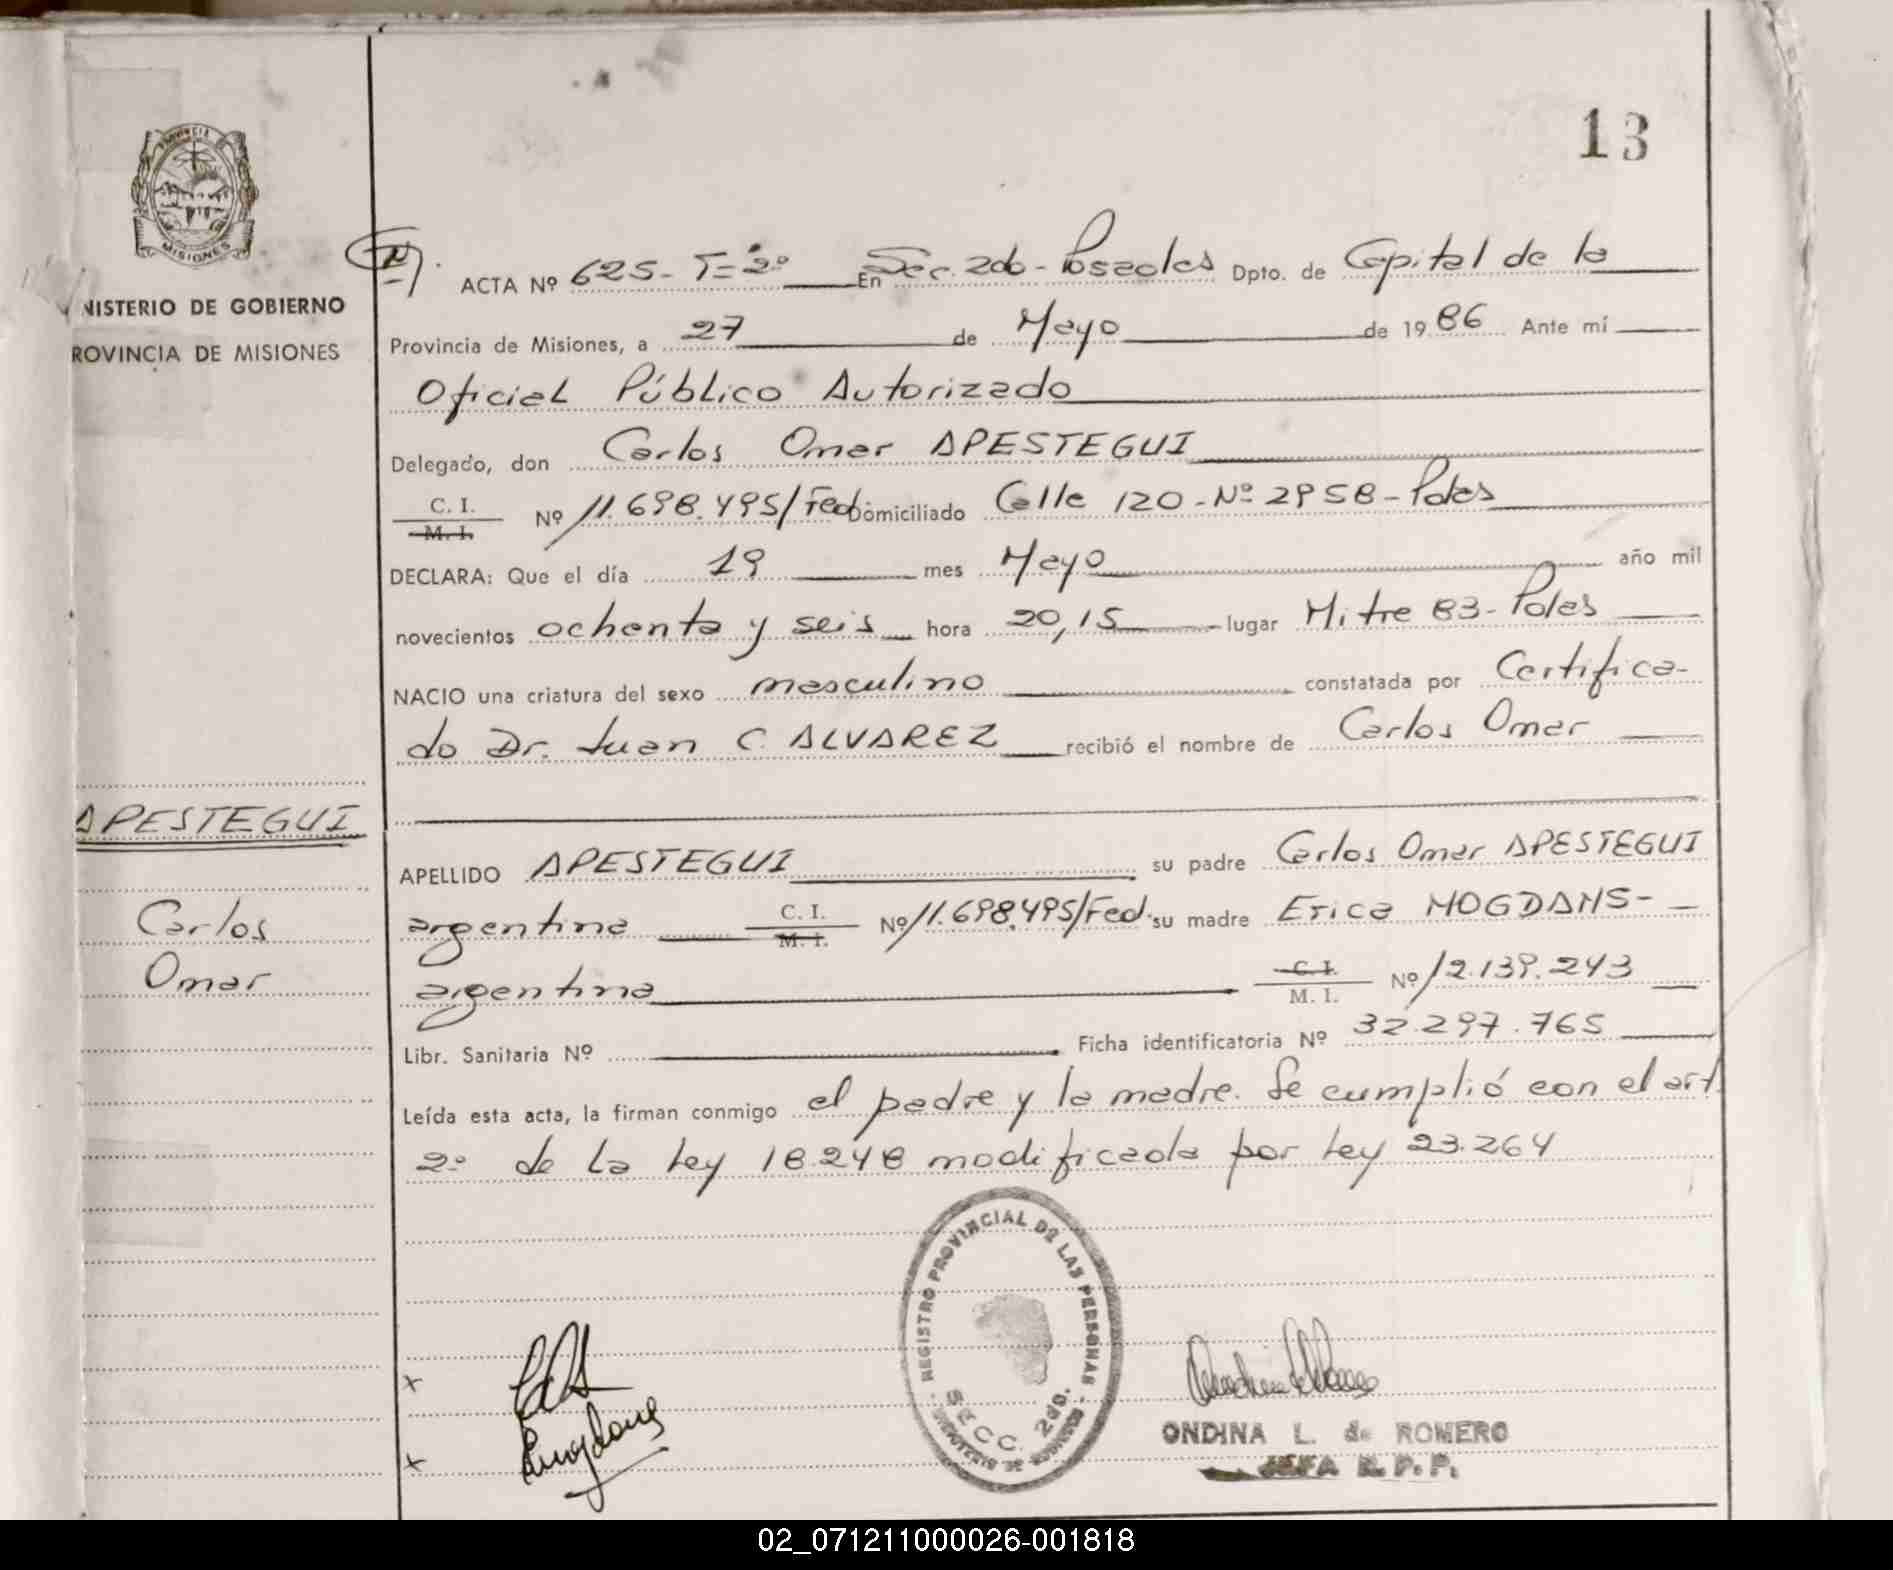 13
PROVINCIA DE
MISIONES
NISTERIO DE GOBIERNO
ROVINCIA DE MISIONES
APESTEGUI
Carlos
Omar
(N). ACTA Nº 625- T=2º En Sec. 2do- Posadas Dpto. de Capital de la
Provincia de Misiones, a 27 de Mayo de 1986 Ante mí
Oficial Público Autorizado
Delegado, don Carlos Omar APESTEGUI
C. I. M. I. Nº 11.698.495/Fed. Domiciliado Calle 120-Nº 2958-Pdas
DECLARA: Que el día 19 mes Mayo año mil
novecientos ochenta y seis hora 20,15 lugar Mitre 83-Pdas
NACIO una criatura del sexo masculino constatada por Certifica-
do Dr. Juan C. ALVAREZ recibió el nombre de Carlos Omar
APELLIDO APESTEGUI su padre Carlos Omar APESTEGUI
argentina C. I. M. I. Nº 11.698.495/Fed. su madre Erica MOGDANS-
argentina C. I. M. I. Nº 12.139.243
Libr. Sanitaria Nº Ficha identificatoria Nº 32.297.765
Leída esta acta, la firman conmigo el padre y la madre. Se cumplió con el art.
2º de la Ley 18.248 modificada por Ley 23.264
REGISTRO PROVINCIAL DE LAS PERSONAS
SECC. 2da.
MINISTERIO DE GOBIERNO
x
x
ONDINA L. de ROMERO
JEFA R. P. P.
02_071211000026-001818